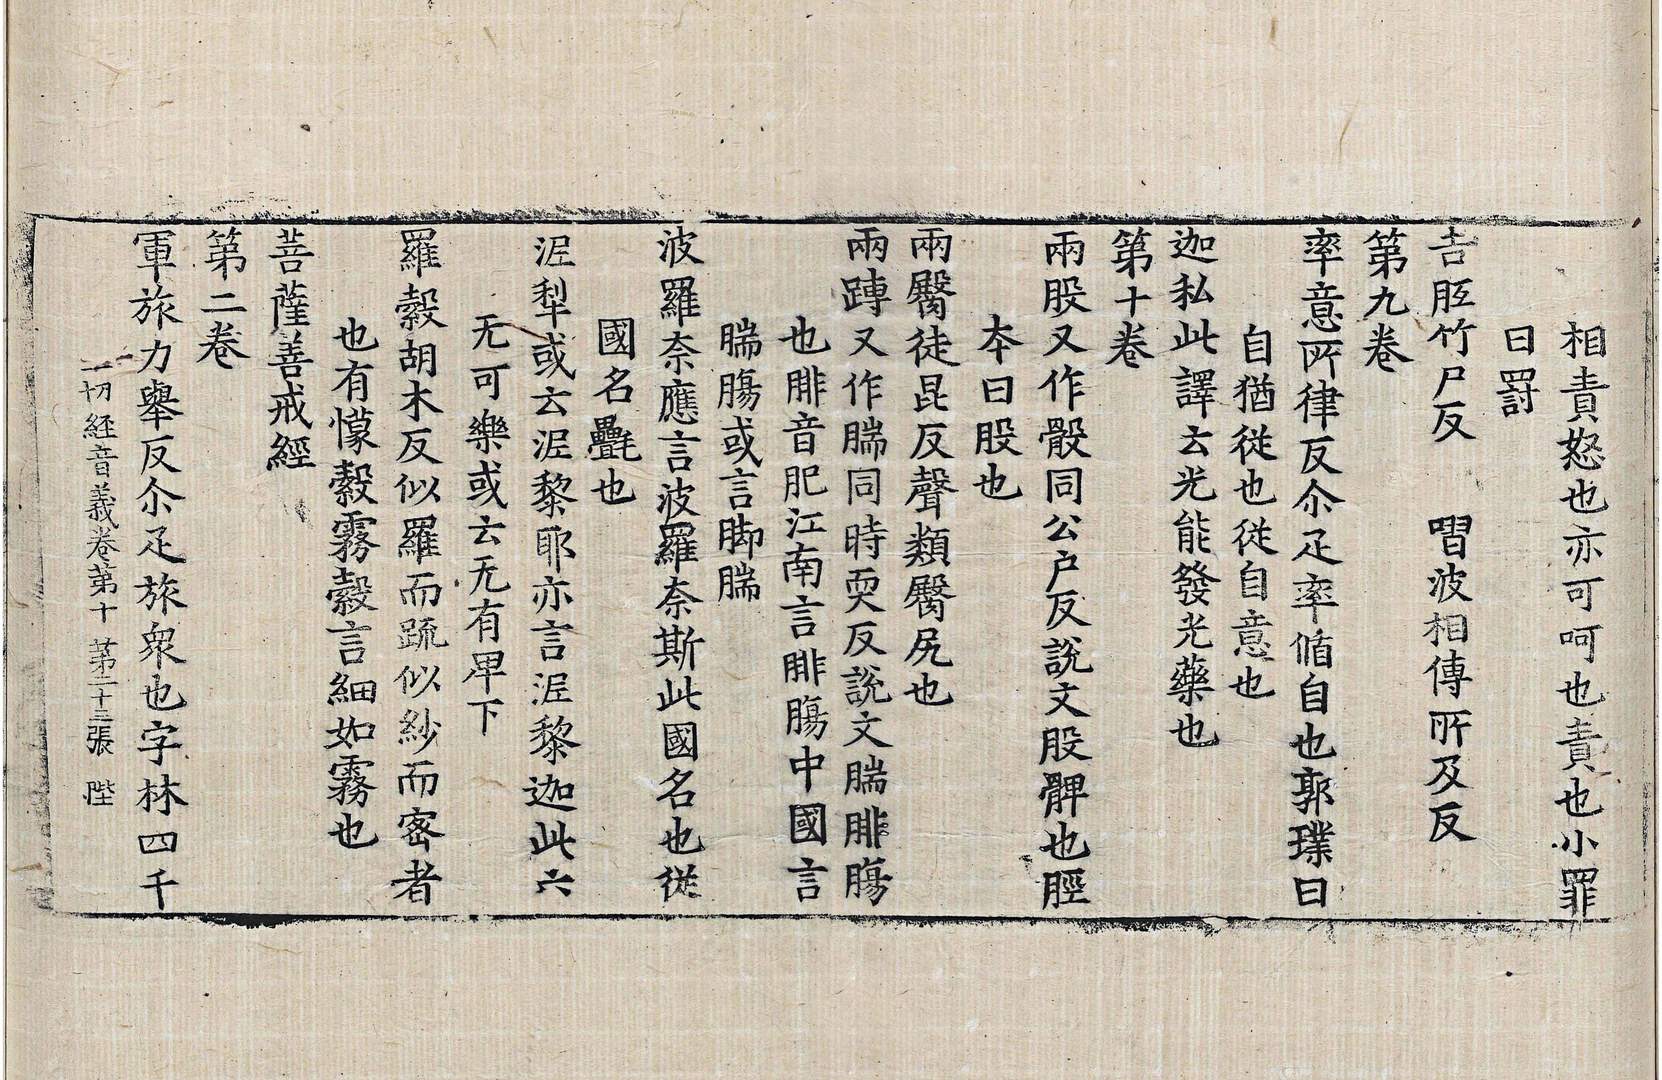 相責怒也亦可呵也責也小罪
曰罸
吉胵竹尸反 㗩波相傳所及反
第九卷
率意所律反尒疋率循自也郭璞曰
自猶從也從自意也
迦私此譯云光能發光藥也
第十卷
兩股又作骰同公户反說文股髀也脛
本曰股也
兩臀徒昆反聲類臀尻也
兩䏝又作腨同時耎反說文腨腓膓
也腓音肥江南言腓膓中國言
腨膓或言脚腨
波羅奈應言波羅奈斯此國名也從
國名㲲也
泥犁或云泥黎耶亦言泥黎迦此云
无可樂或云无有卑下
羅縠胡木反似羅而䟽似紗而密者
也有㡓縠霧縠言細如霧也
菩薩善戒經
第二卷
軍旅力舉反尒疋旅衆也字林四千
一切經音義卷第十 第二十三張 陛